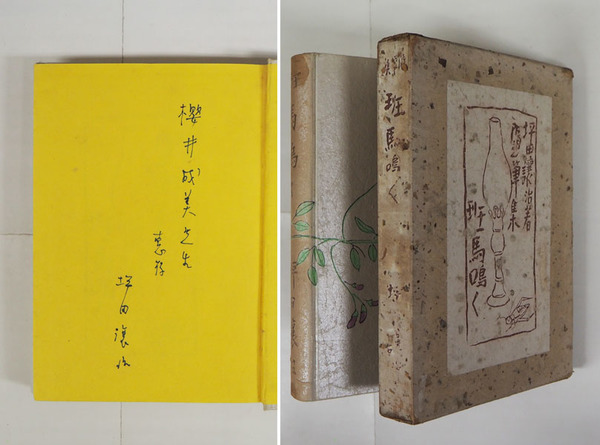 櫻井成美先生
恵存
坪田譲治
班馬鳴く
坪田譲治著
随筆集
班馬鳴く